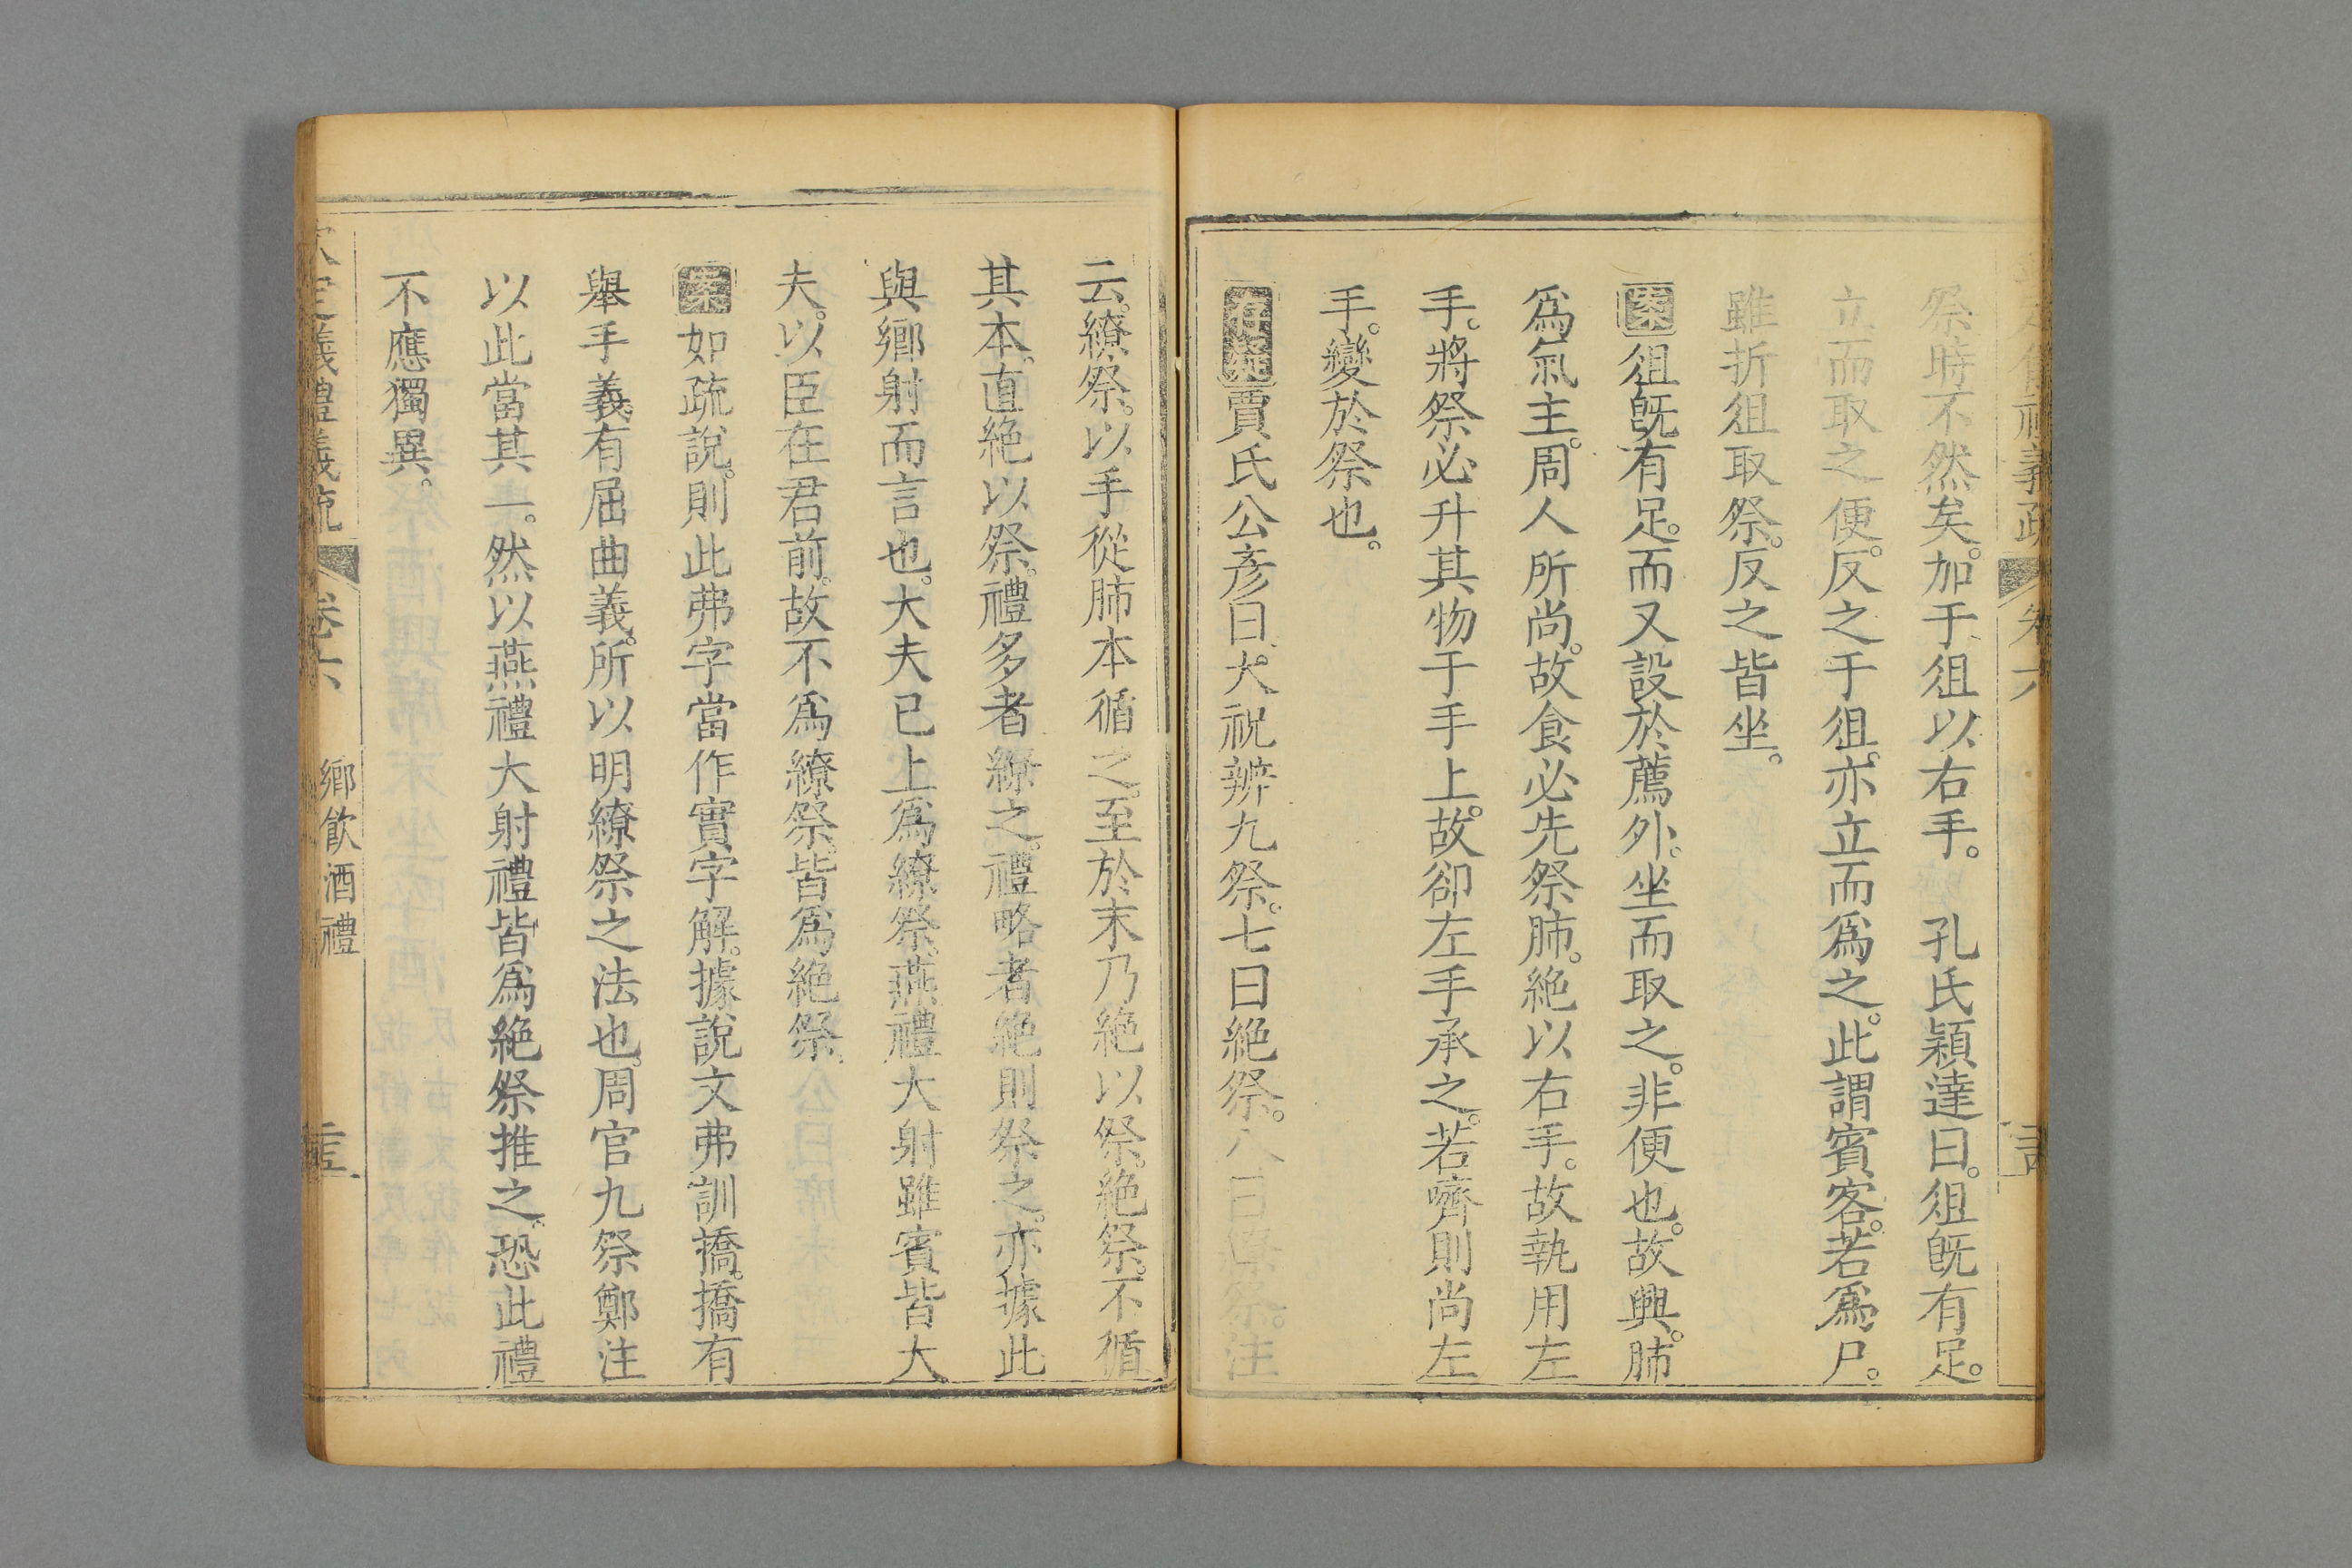 祭時不然矣。加于俎以右手。　孔氏穎達曰。俎旣有足。
立而取之便。反之于俎。亦立而爲之。此謂賓客。若爲尸。
雖折俎取祭。反之皆坐。
案俎旣有足。而又設於薦外。坐而取之。非便也。故興。肺
爲氣主。周人所尚。故食必先祭肺。絶以右手。故執用左
手。將祭必升其物于手上。故卻左手承之。若嚌則尚左
手。變於祭也。
存疑賈氏公彥曰。大祝辨九祭。七曰絶祭。八曰繚祭。注
云。繚祭。以手從肺本循之。至於末乃絶以祭。絶祭。不循
其本。直絶以祭。禮多者繚之。禮略者絶則祭之。亦據此
與鄉射而言也。大夫已上爲繚祭。燕禮大射雖賓皆大
夫。以臣在君前。故不爲繚祭。皆爲絶祭。
案如疏說。則此弗字當作實字解。據說文弗訓撟。撟有
舉手義。有屈曲義。所以明繚祭之法也。周官九祭鄭注
以此當其一。然以燕禮大射禮皆爲絶祭推之。恐此禮
不應獨異。
義禮義疏　卷六　鄉飮酒禮